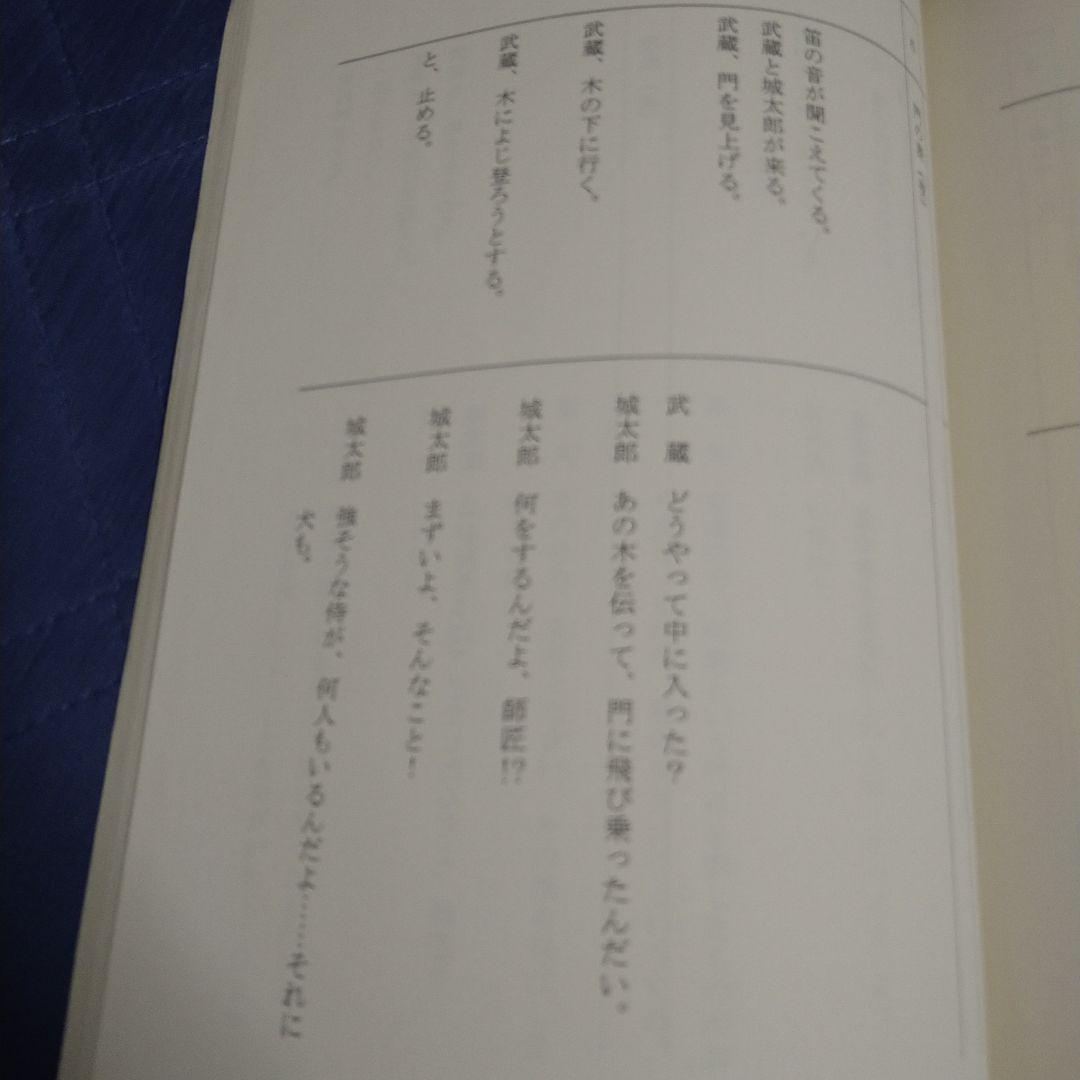 笛の音が聞こえてくる。
武蔵と城太郎が来る。
武蔵、門を見上げる。
武蔵、木の下に行く。
武蔵、木によじ登ろうとする。
と、止める。
武　蔵　どうやって中に入った？
城太郎　あの木を伝って、門に飛び乗ったんだい。
城太郎　何をするんだよ、師匠!?
城太郎　まずいよ、そんなこと！
城太郎　強そうな侍が、何人もいるんだよ……それに
犬も。